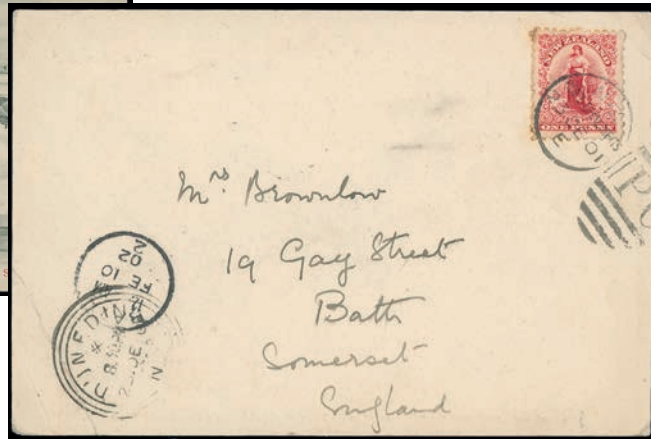 NEW ZEALAND
ONE PENNY
Mrs Brownlow
19 Gay Street
Bath
Somerset
England
02
FE 10
DUNEDIN